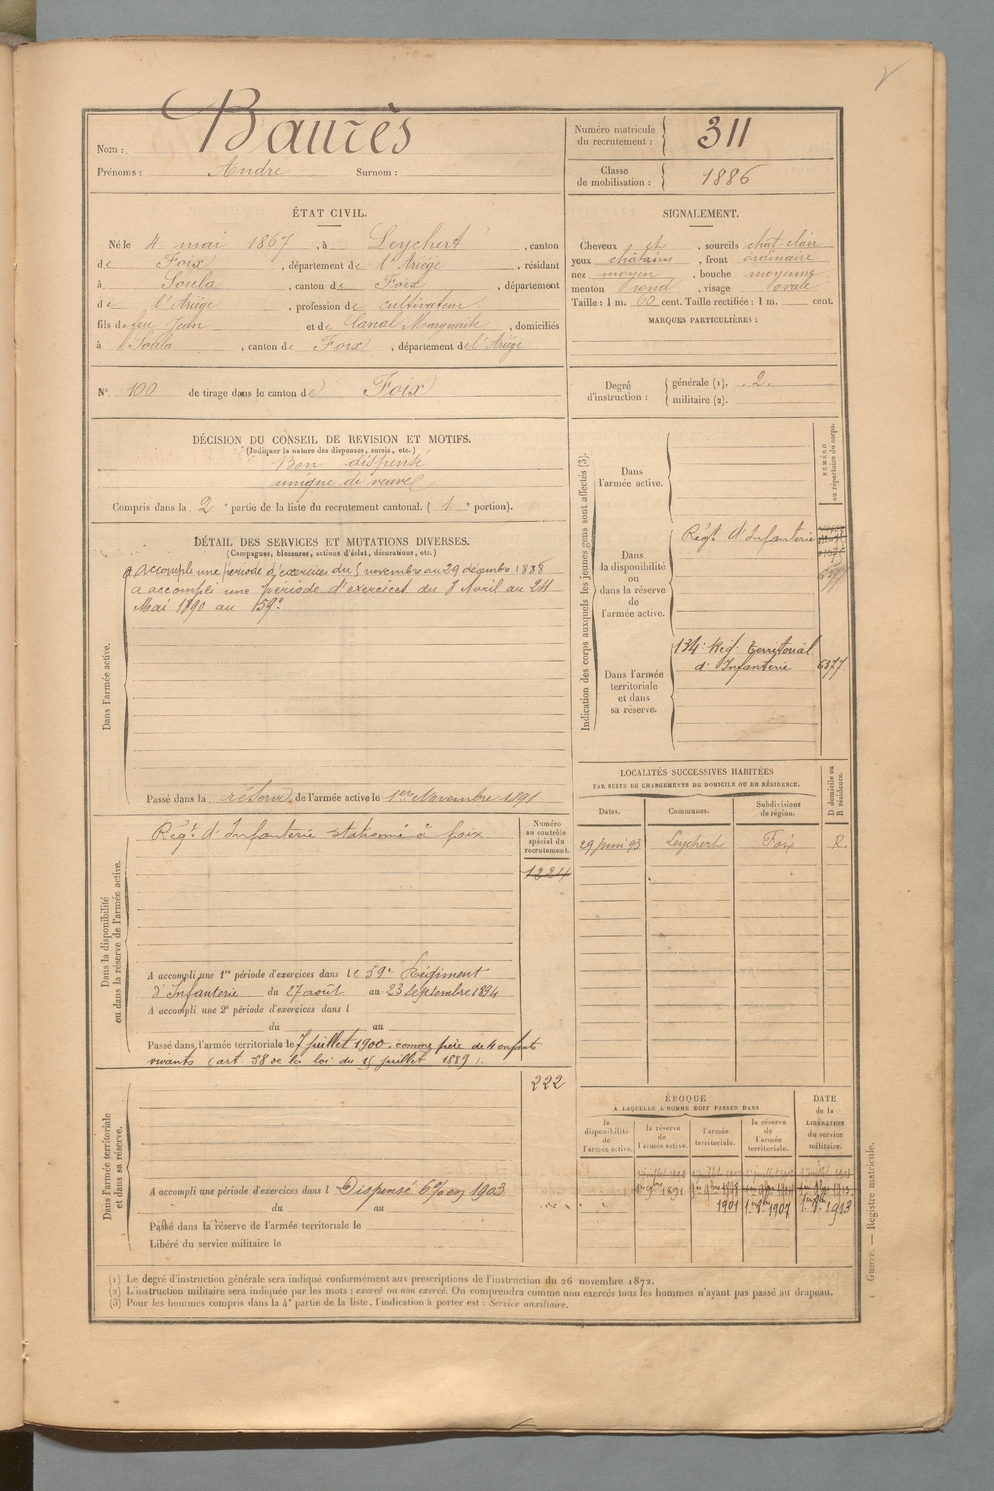 Nom : Baurès
Prénoms : André Surnom :
Numéro matricule
du recrutement : 311
Classe
de mobilisation : 1886
ÉTAT CIVIL.
Né le 4 mai 1867, à Leychert, canton
de Foix, département de l'Ariège, résidant
à Soula, canton de Foix, département
de l'Ariège, profession de cultivateur
fils de feu Jean et de Canal Marguerite, domiciliés
à Soula, canton de Foix, département de l'Ariège
SIGNALEMENT.
Cheveux et, sourcils chat-clair
yeux châtains, front ordinaire
nez moyen, bouche moyenne
menton rond, visage ovale
Taille : 1 m. 60 cent. Taille rectifiée : 1 m. cent.
MARQUES PARTICULIÈRES :
N° 100 de tirage dans le canton de Foix
Degré
d'instruction :
générale (1). 2
militaire (2).
DÉCISION DU CONSEIL DE REVISION ET MOTIFS.
(Indiquer la nature des dispenses, sursis, etc.)
Bon dispensé
unique de veuve
Compris dans la 2e partie de la liste du recrutement cantonal. ( 1e portion).
DÉTAIL DES SERVICES ET MUTATIONS DIVERSES.
(Campagnes, blessures, actions d'éclat, décorations, etc.)
Dans l'armée active.
a accompli une période d'exercices du 5 novembre au 29 décembre 1888
a accompli une période d'exercices du 1 Avril au 24
Mai 1890 au 59e
Passé dans la réserve de l'armée active le 1er Novembre 1891
Indication des corps auxquels les jeunes gens sont affectés (3).
NUMÉRO
au répertoire du corps.
Dans
l'armée active.
Dans
la disponibilité
ou
dans la réserve
de
l'armée active.
Régt d'Infanterie
Dans l'armée
territoriale
et dans
sa réserve.
134e Rég. Territorial
d'Infanterie 6377
LOCALITÉS SUCCESSIVES HABITÉES
PAR SUITE DE CHANGEMENTS DE DOMICILE OU DE RÉSIDENCE.
D domicile ou
R résidence.
Dates. Communes. Subdivisions
de région.
29 juin 93 Leychert Foix R.
Dans la disponibilité
ou dans la réserve de l'armée active.
Régt d'Infanterie stationné à Foix
Numéro
au contrôle
spécial du
recrutement.
1224
A accompli une 1re période d'exercices dans le 59e Régiment
d'Infanterie du 27 août au 23 septembre 1894
A accompli une 2e période d'exercices dans l
du au
Passé dans l'armée territoriale le 7 juillet 1900 comme père de 4 enfants
vivants (art. 58 de la loi du 15 juillet 1889).
222
Dans l'armée territoriale
et dans sa réserve.
A accompli une période d'exercices dans l Dispensé 6% en 1903
du au
Passé dans la réserve de l'armée territoriale le
Libéré du service militaire le
ÉPOQUE
A LAQUELLE L'HOMME DOIT PASSER DANS
DATE
de la
LIBÉRATION
du service
militaire.
la
disponibilité
de
l'armée active.
la réserve
de
l'armée active.
l'armée
territoriale.
la réserve
de
l'armée
territoriale.
1er 9bre 1891
1901 1907 1913
(1) Le degré d'instruction générale sera indiqué conformément aux prescriptions de l'instruction du 26 novembre 1872.
(2) L'instruction militaire sera indiquée par les mots : exercé ou non exercé. On comprendra comme non exercés tous les hommes n'ayant pas passé au drapeau.
(3) Pour les hommes compris dans la 4e partie de la liste, l'indication à porter est : Service auxiliaire.
Guerre. — Registre matricule.